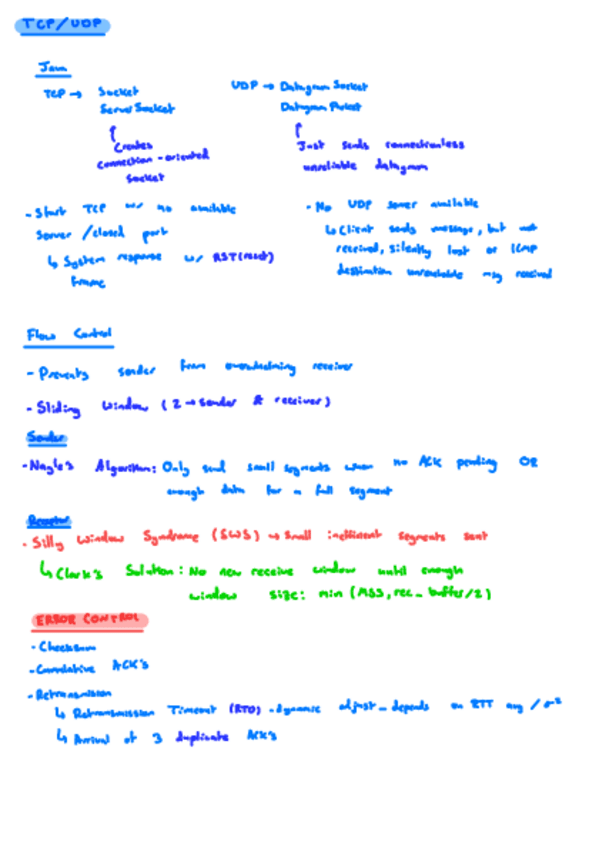 TCP/UDP
Java
TCP → Socket
ServerSocket
↑ Creates
connection-oriented
socket
UDP → Datagram Socket
Datagram Packet
↑
Just sends connectionless
unreliable datagram
- Start TCP w/ no available
server/closed port
↳ System response w/ RST(reset)
frame
- No UDP server available
↳ Client sends message, but not
received, silently lost or ICMP
destination unreachable msg received
Flow Control
- Prevents sender from overwhelming receiver
- Sliding Window (2 → sender & receiver)
Sender
- Nagle's Algorithm: Only send small segments when no ACK pending OR
enough data for a full segment
Receiver
- Silly Window Syndrome (SWS) → small inefficient segments sent
↳ Clark's Solution: No new receive window until enough
window size: min (MSS, rec_buffer/2)
ERROR CONTROL
- Checksum
- Cumulative ACK's
- Retransmission
↳ Retransmission Timeout (RTO) - dynamic adjust_depends on RTT avg / σ²
↳ Arrival of 3 duplicate ACK's